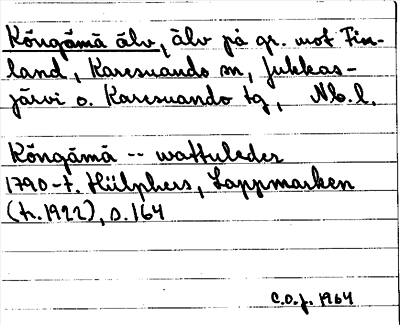 Köngämä älv, älv på gr. mot Fin-
land, Karesuando sn, Jukkas-
järvi o. Karesuando tg, Nb. l.
Köngämä -- wattuleder
1790-t. Hülphers, Lappmarken
(tr. 1922), s. 164
C.O.J. 1964